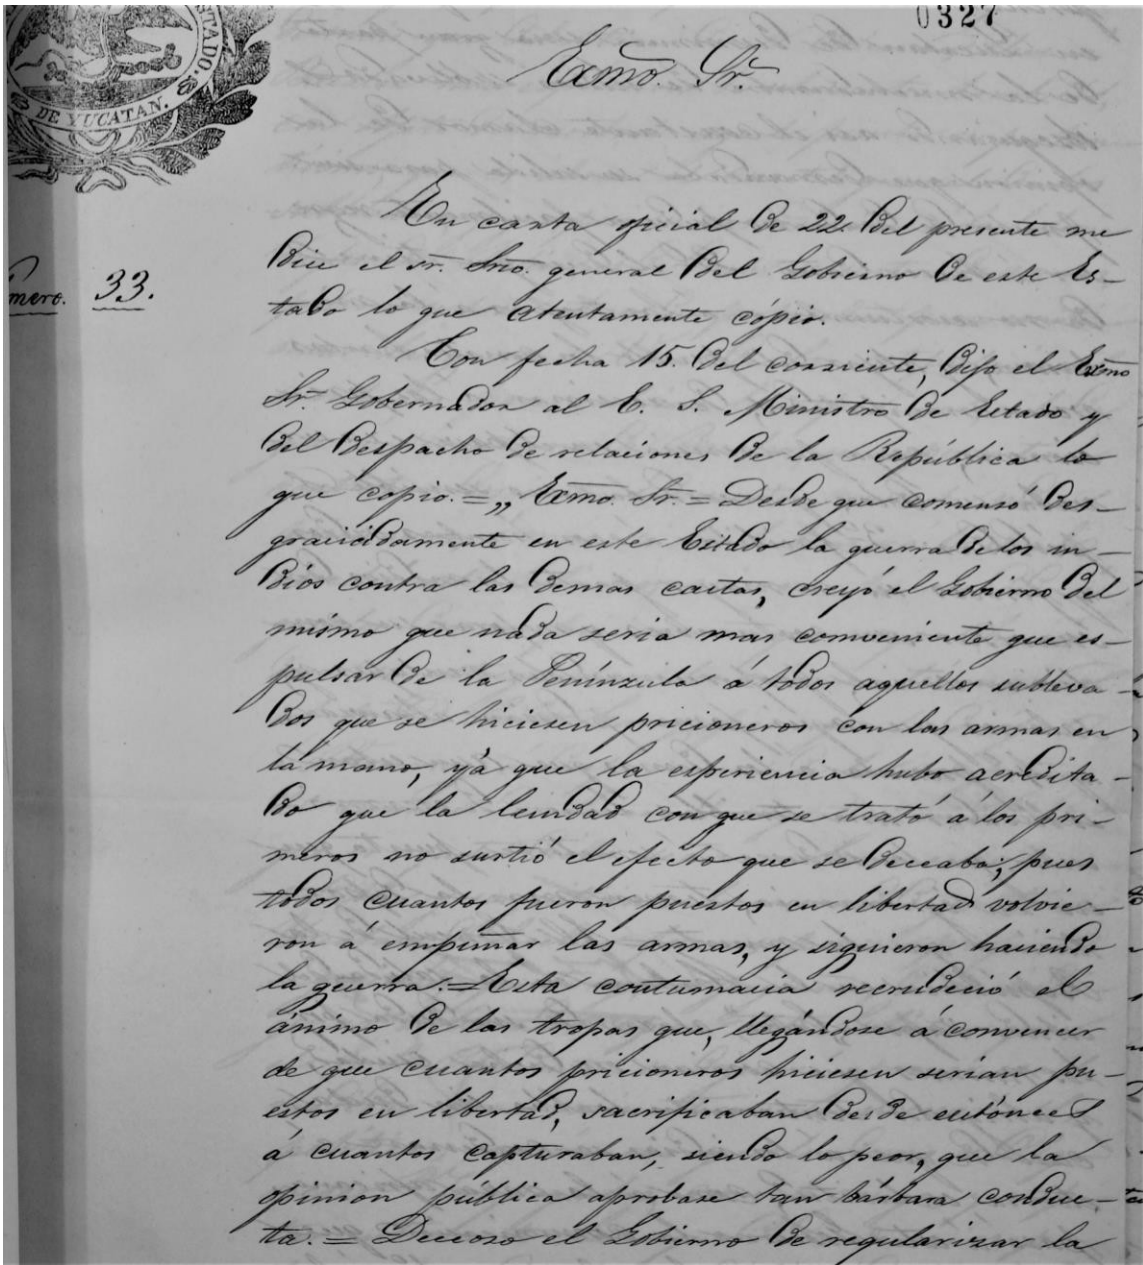 0327
ESTADO.
DE YUCATAN.
Exmo. Sr.
En carta oficial de 22 del presente me
dice el sr. Srio. general del Gobierno de este Es-
Numero. 33.
tado lo que atentamente cópio.
Con fecha 15. del corriente, dijo el Exmo
Sr. Gobernador al E. S. Ministro de Estado y
del Despacho de relaciones de la República lo
que copio. = „ Exmo. Sr. = Desde que comensó des-
graciadamente en este Estado la guerra de los in-
dios contra las demas castas, creyó el Gobierno del
mismo que nada seria mas comveniente que es-
pulsar de la Penínzula á todos aquellos subleva-
dos que se hiciesen pricioneros con las armas en
la mano, yá que la esperiencia hubo acredita-
do que la lenidad con que se trató á los pri-
meros no surtió el efecto que se deceaba; pues
todos cuantos fueron puestos en libertad volvie-
ron á empuñar las armas, y siguieron haciendo
la guerra. = Esta contumacia recrudeció el
ánimo de las tropas que, llegándose á convencer
de que cuantos pricioneros hiciesen serían pu-
estos en libertad, sacrificaban desde entónces
á cuantos capturaban, siendo lo peor, que la
opinion pública aprobase tan bárbara conduc-
ta. = Deceoso el Gobierno de regularizar la